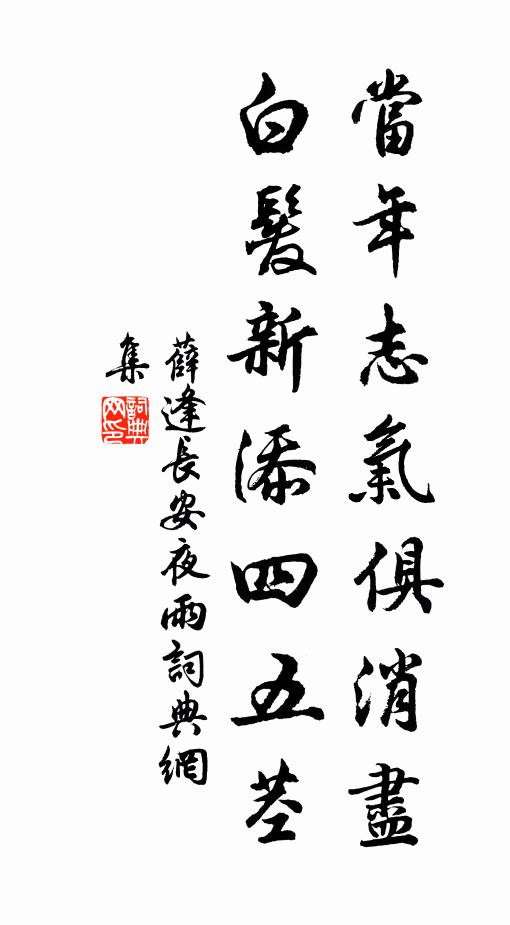 當年志氣俱消盡
白髮新添四五莖
薛逢長安夜雨詞典網
集
詞典
网印